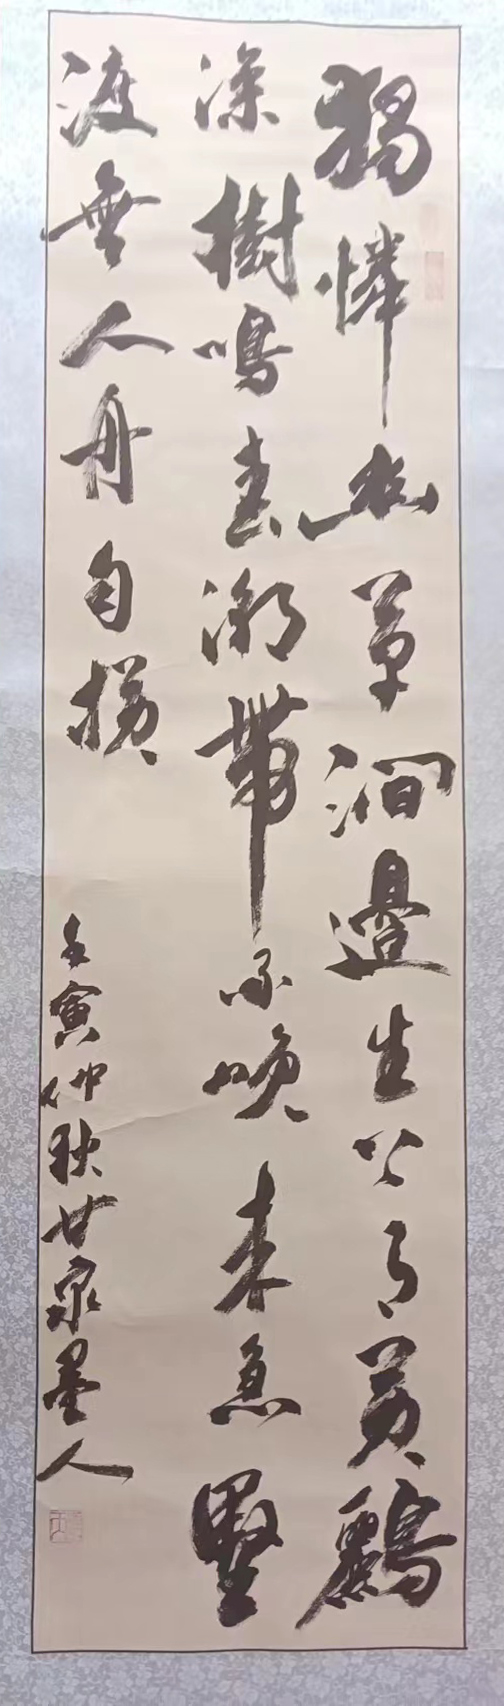 獨憐幽草澗邊生上有黃鸝
深樹鳴春潮帶雨晚來急墅
渡無人舟自橫
壬寅仲秋甘泉墨人